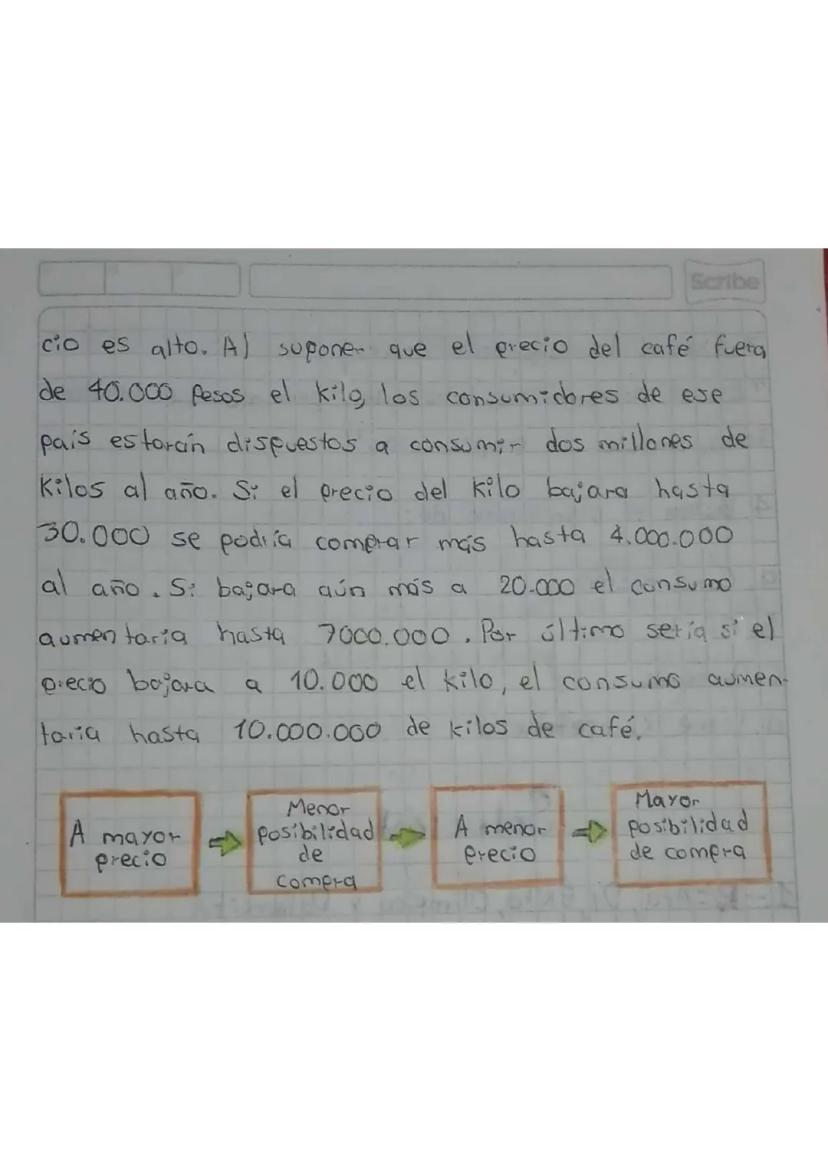 Scribe
cio es alto. Al suponer que el precio del café fuera
de 40.000 pesos el kilo, los consumidores de ese
país estarán dispuestos a consumir dos millones de
kilos al año. Si el precio del kilo bajara hasta
30.000 se podría comprar más hasta 4.000.000
al año. Si bajara aún más a 20.000 el consumo
aumentaria hasta 7000.000. Por último sería si el
precio bajara a 10.000 el kilo, el consumo aumen-
taria hasta 10.000.000 de kilos de café.
A mayor
precio
Menor
posibilidad
de
compra
A menor
precio
Mayor
posibilidad
de compra